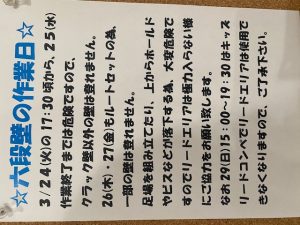 ☆六段壁の作業日☆
3/24(火)の17:30頃から、25(水)
作業終了までは危険ですので、
クラック壁以外の壁は登れません。
26(木)・27(金)もルートセットの為、
一部の壁は登れません。
足場を組み立てたり、上からホールド
やビスなどが落下する為、大変危険で
すのでリードエリアは極力入らない様
にご協力をお願い致します。
なお29(日)15:00～19:30はキッズ
リードコンペでリードエリアは使用で
きなくなりますので、ご了承下さい。